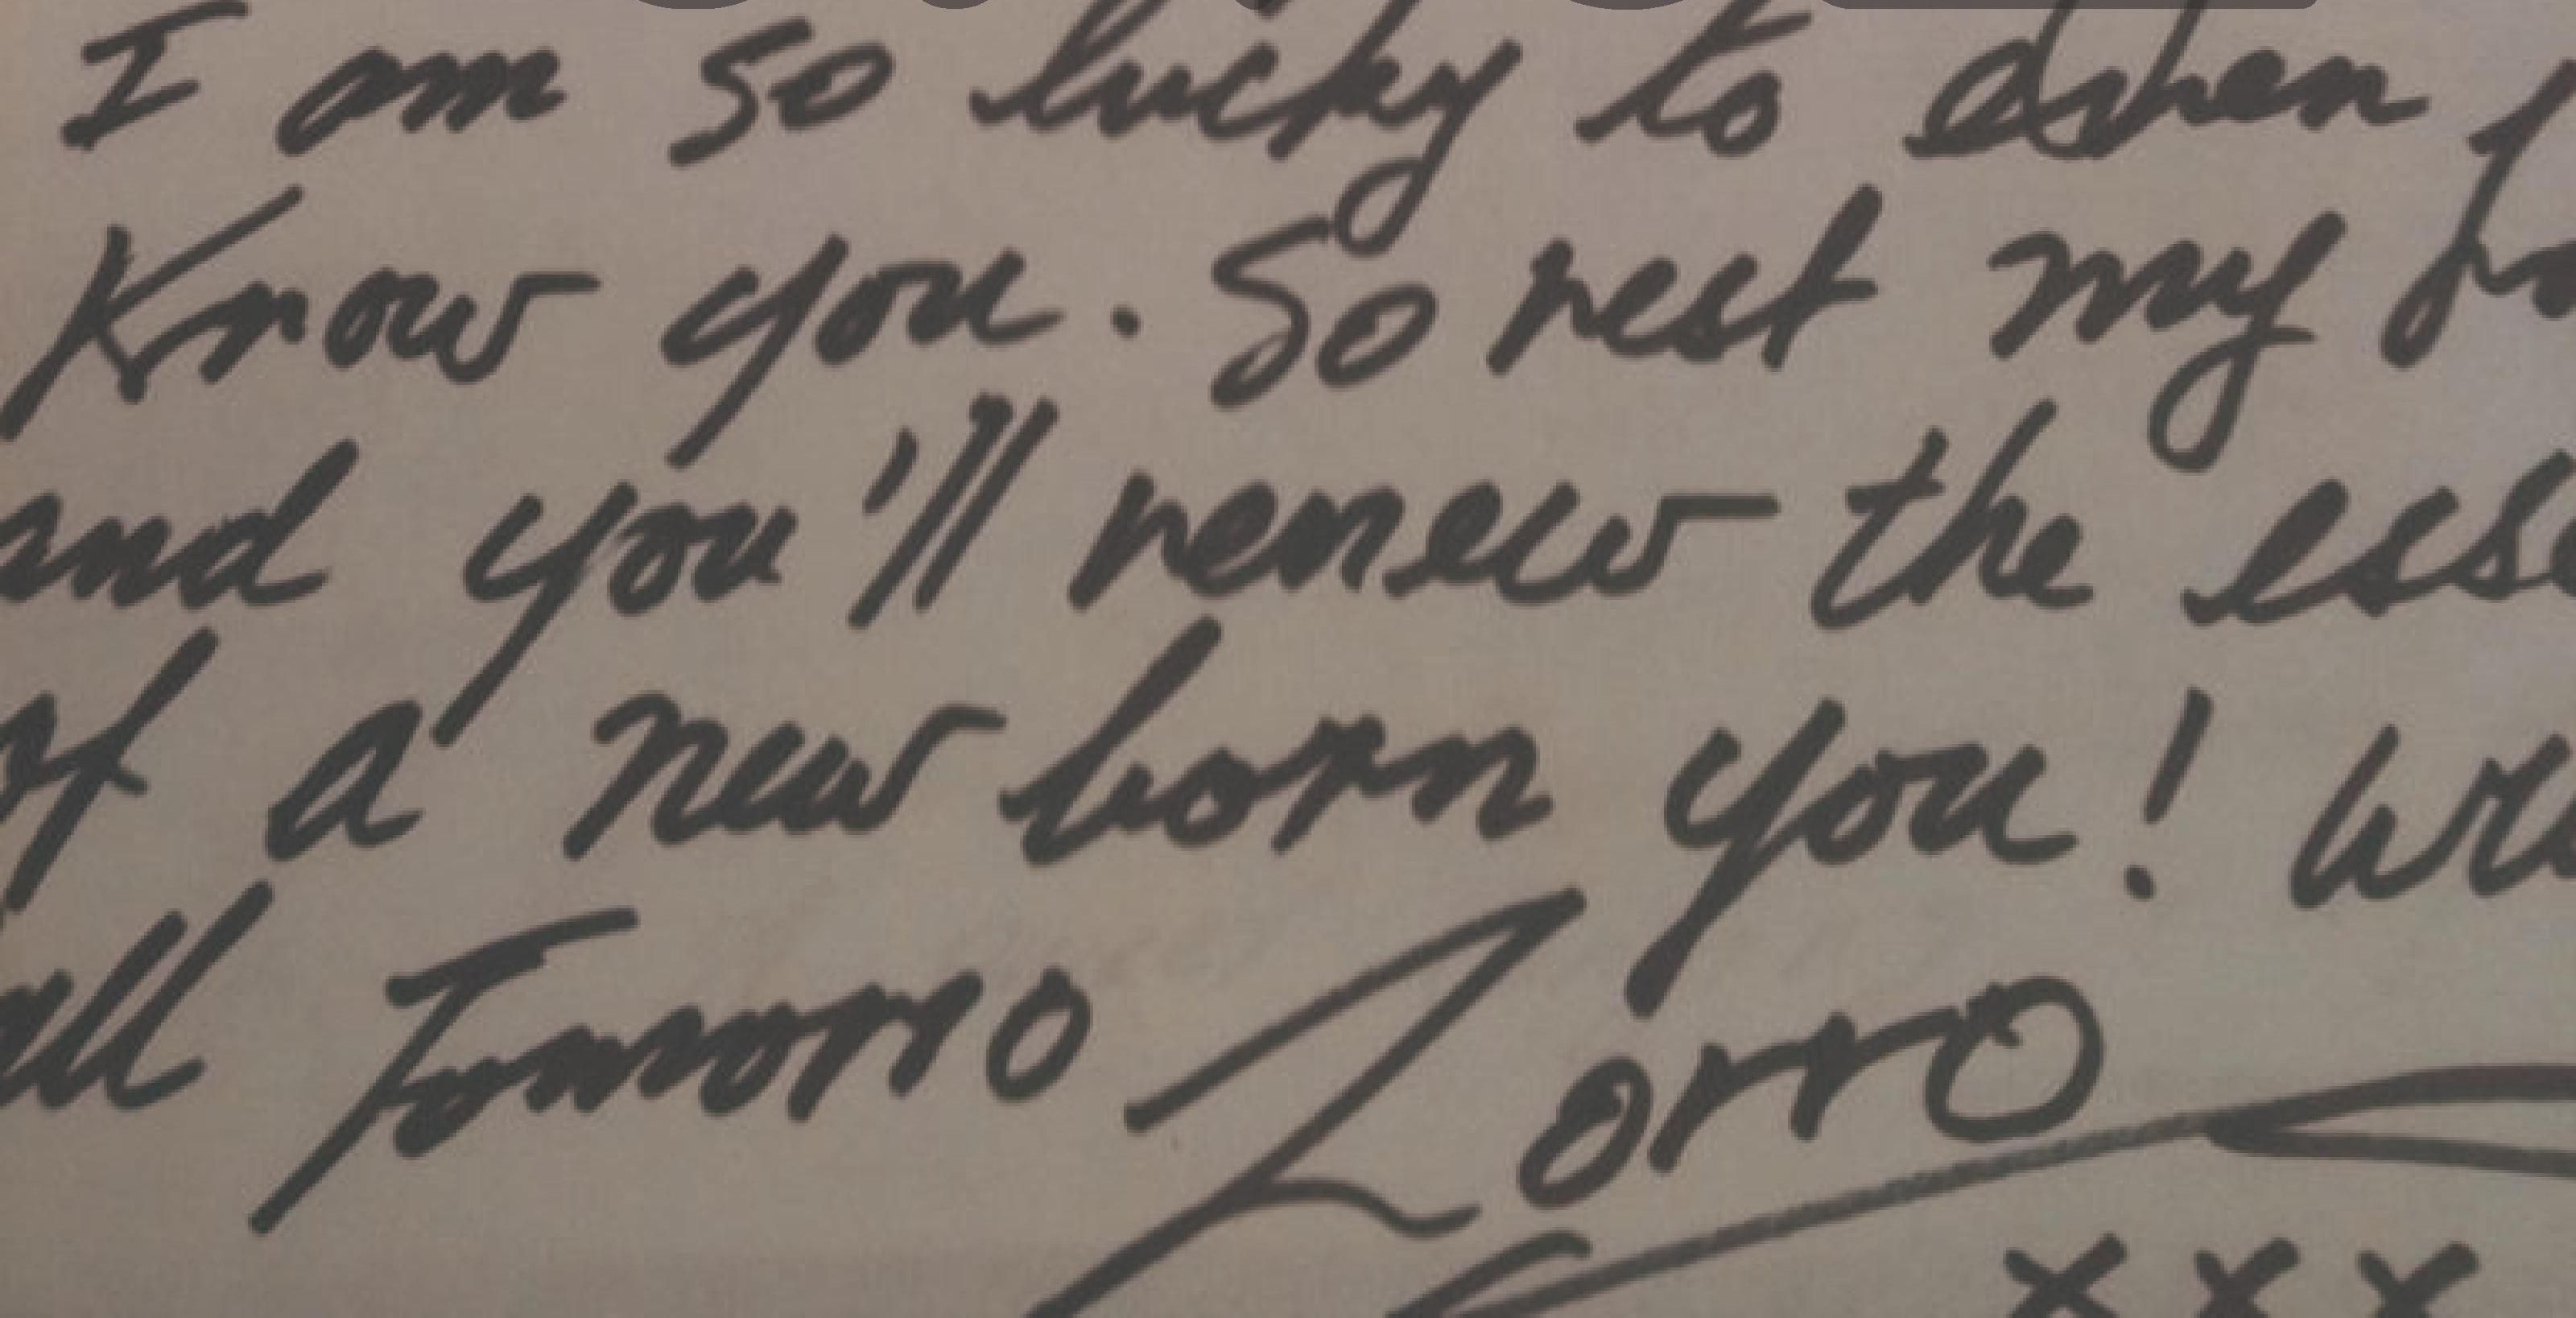 I am so lucky to
Know you. So rest my
and you'll renew the esse
of a new born you!
all Tomorro Zorro
xxx